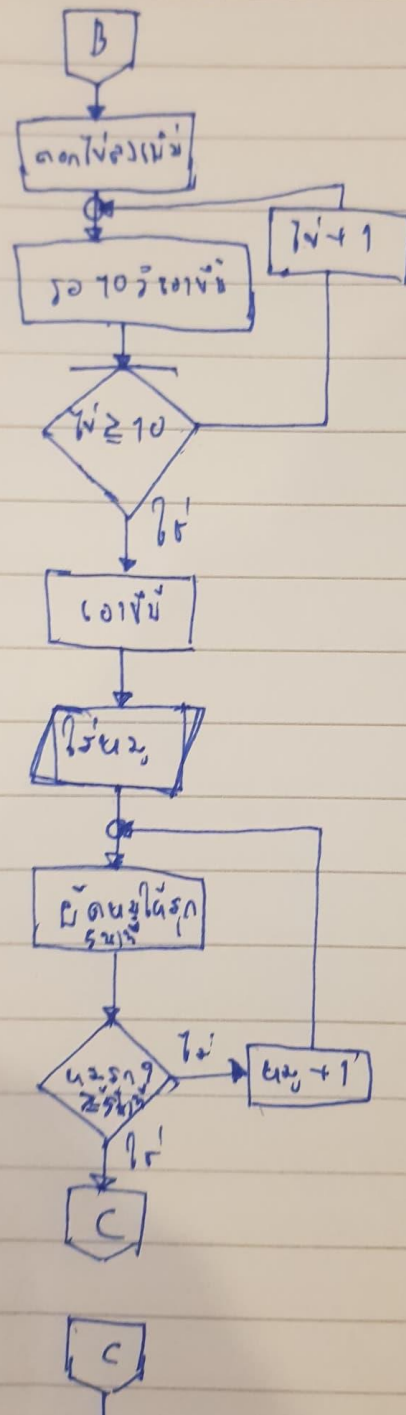 B
ตอกไข่ลงเพิ่ม
ไข่ + 1
รอ 10 วิเอาขึ้น
ไข่ ≥ 10
ใช่
เอาขึ้น
ใส่หมู
ผัดหมูให้สุก
5 นาที
หมูสุก?
≥ 5 นาที
ไม่
หมู + 1
ใช่
C
C